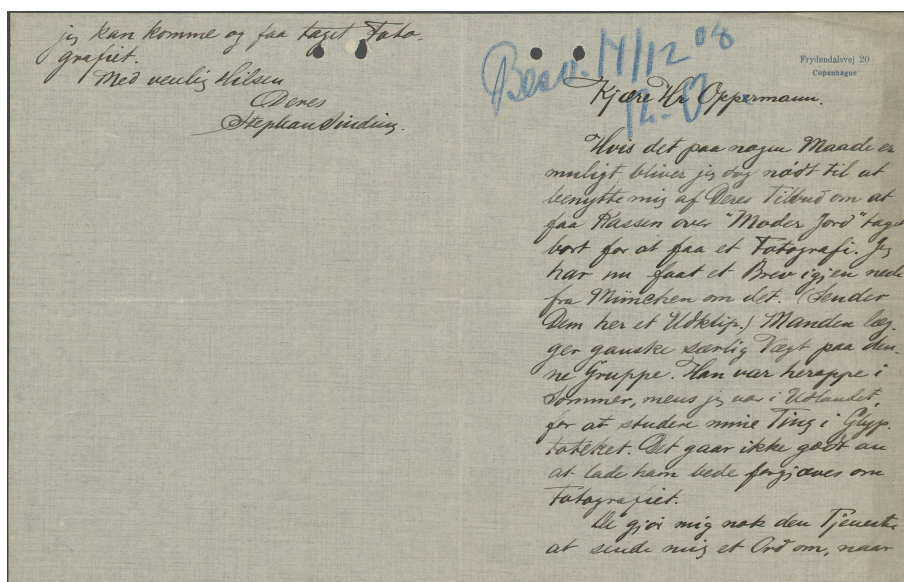 Frydendalsvej 20
Copenhague
Besv. 14/12 08
Kjære Hr Oppermann.
Hvis det paa nogen Maade er
muligt bliver jeg dog nødt til at
benytte mig af Deres Tilbud om at
faa Kassen over "Moder Jord" taget
bort for at faa et Fotografi. Jeg
har nu faaet et Brev igjen nede
fra München om det. (Sender
Dem her et Udklip.) Manden læg-
ger ganske særlig Vægt paa den-
ne Gruppe. Han var heroppe i
Sommer, mens jeg var i Udlandet,
for at studere mine Ting i Glyp-
toteket. Det gaar ikke godt an
at lade ham bede forgjæves om
Fotografiet.
De gjør mig nok den Tjeneste
at sende mig et Ord om, naar
jeg kan komme og faa taget Foto-
grafiet.
Med venlig Hilsen
Deres
Stephan Sinding.